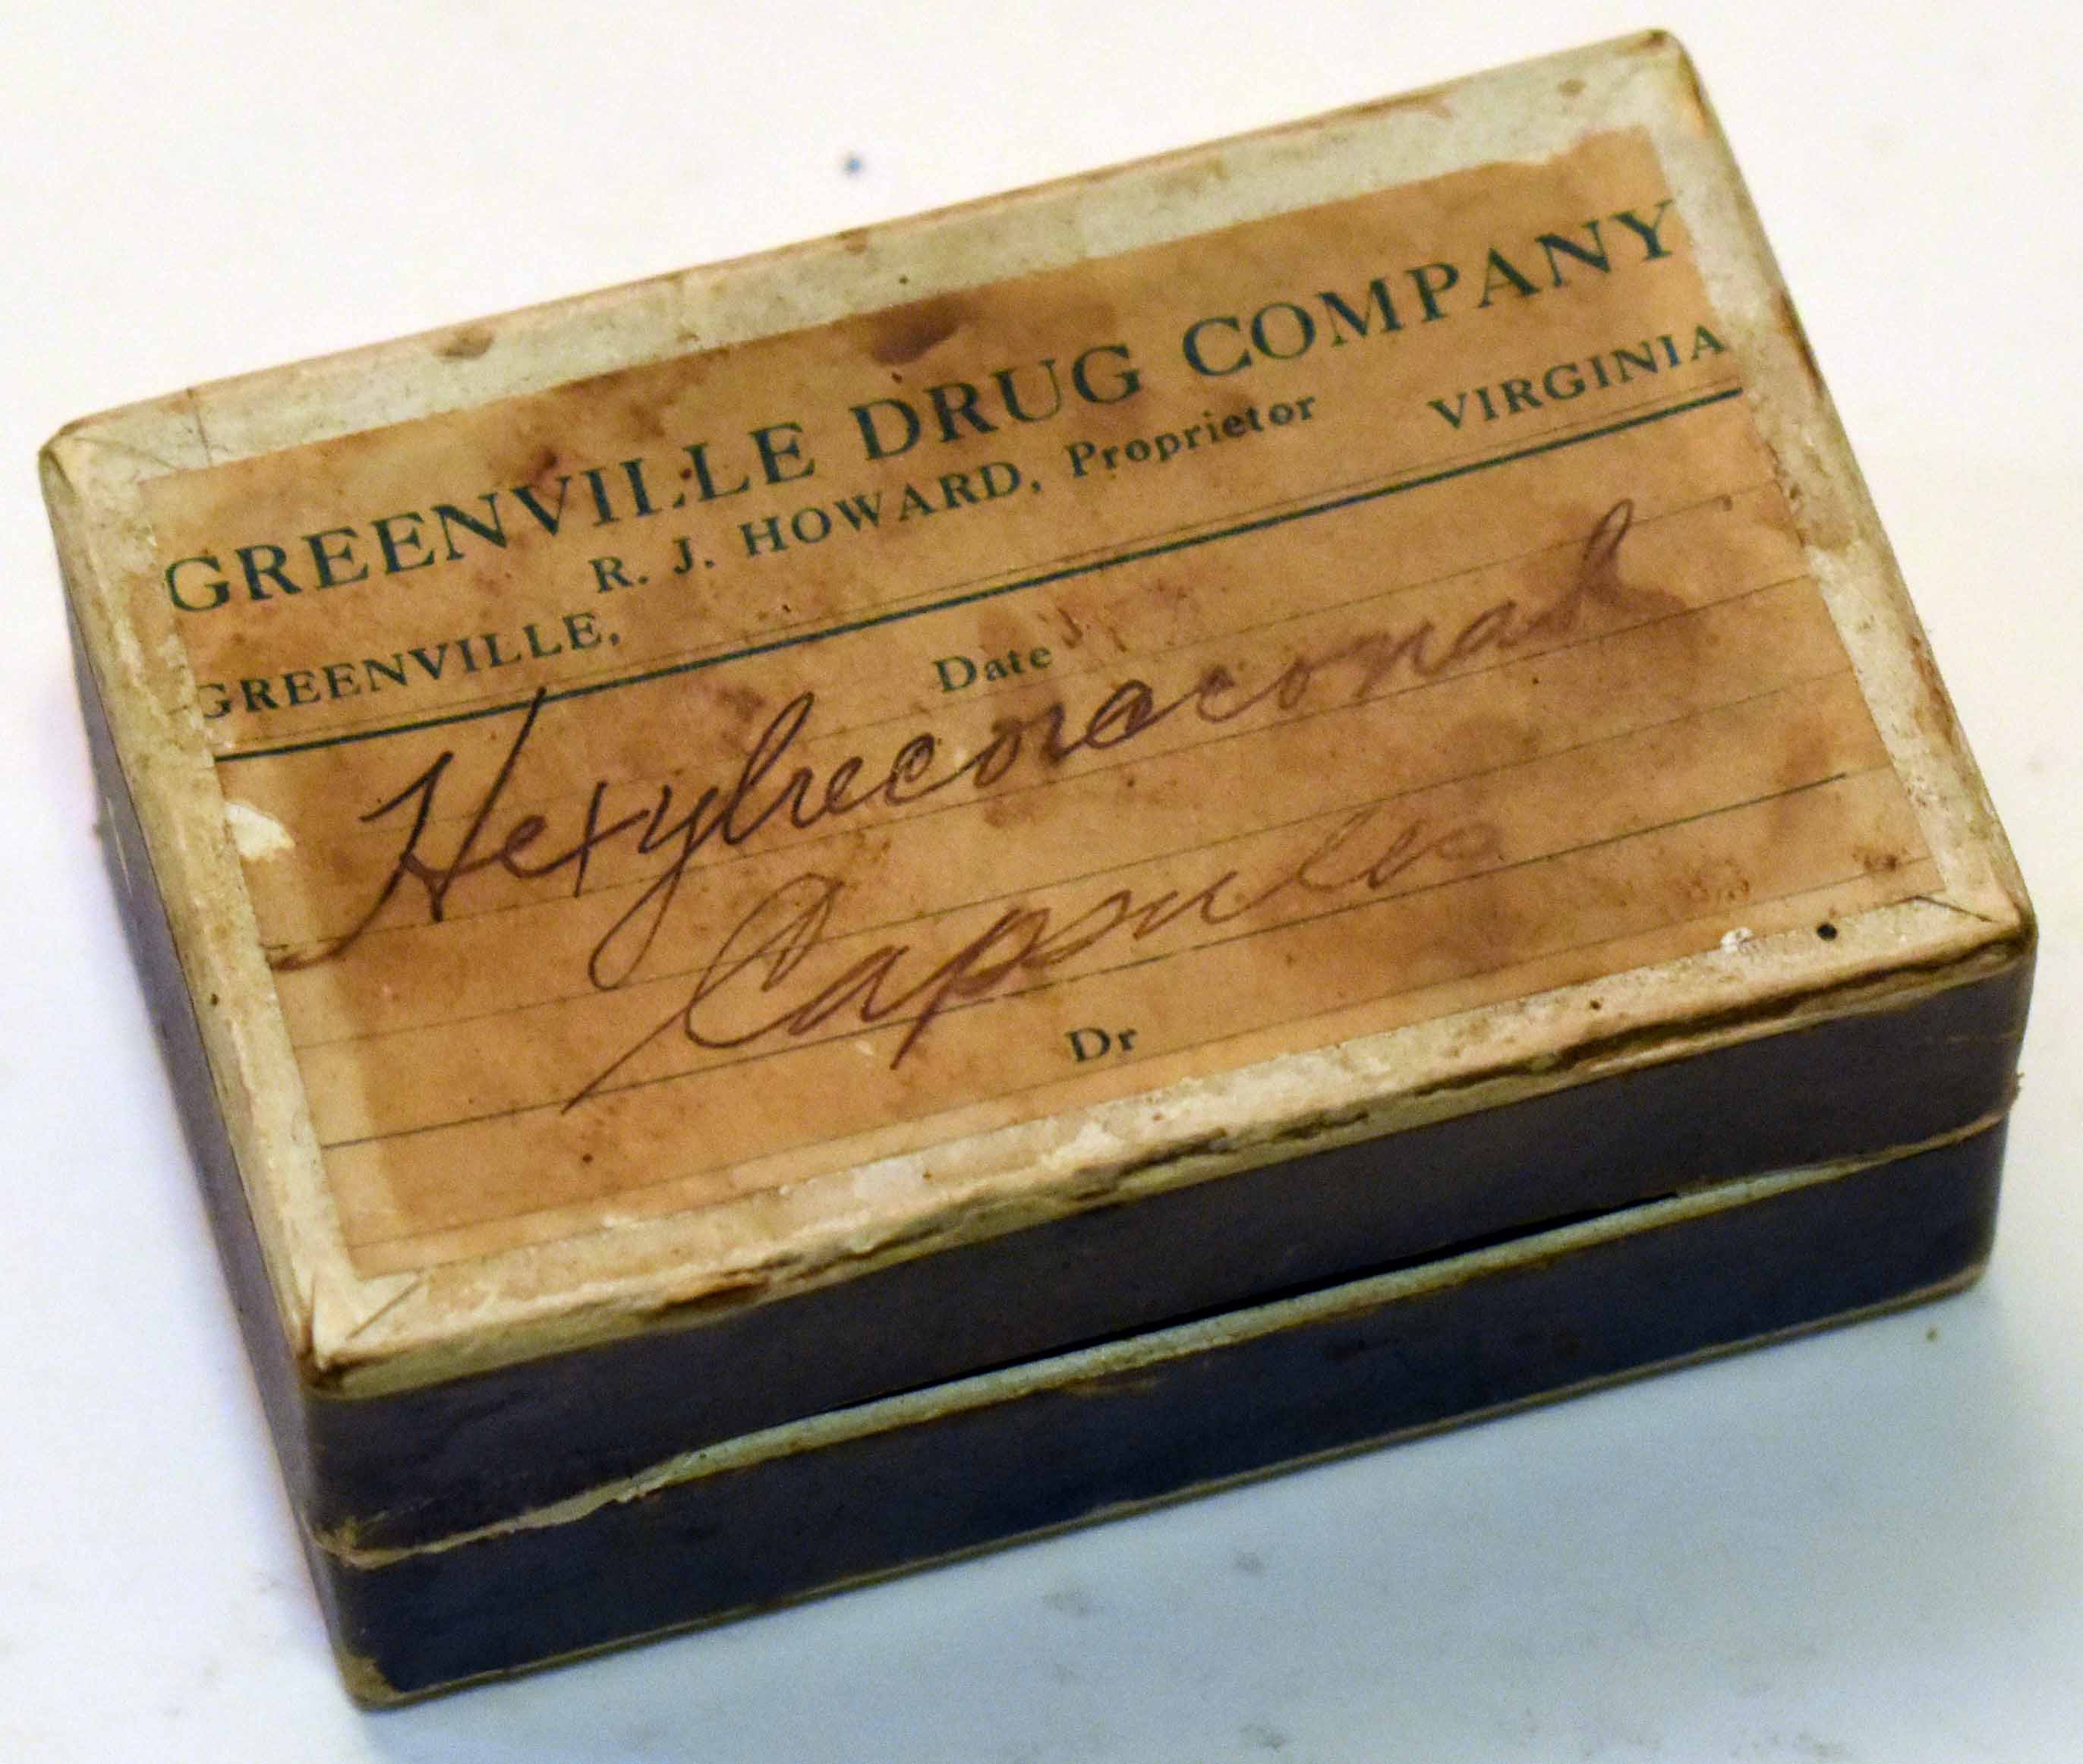 GREENVILLE DRUG COMPANY
R. J. HOWARD, Proprietor
GREENVILLE, VIRGINIA
Date
Hexylrecoraconal
Capsules
Dr